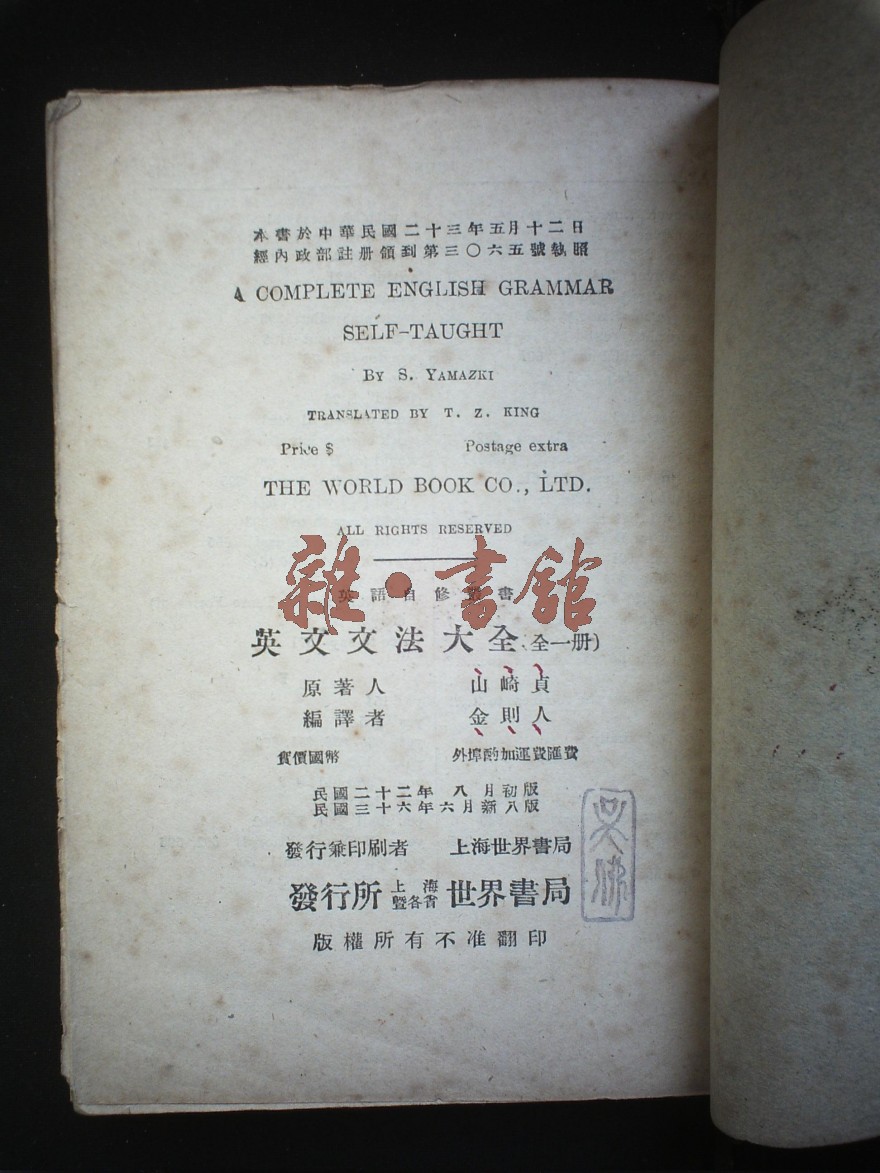 本書於中華民國二十三年五月十二日
經內政部註册領到第三〇六五號執照
A COMPLETE ENGLISH GRAMMAR
SELF-TAUGHT
BY S. YAMAZKI
TRANSLATED BY T. Z. KING
Price $ Postage extra
THE WORLD BOOK CO., LTD.
ALL RIGHTS RESERVED
雜·書館
英語自修叢書
英文文法大全 全一册)
原著人 山崎貞
編譯者 金則人
實價國幣 外埠酌加運費匯費
民國二十二年八月初版
民國三十六年六月新八版
發行兼印刷者 上海世界書局
發行所 上海暨各省 世界書局
版權所有不准翻印